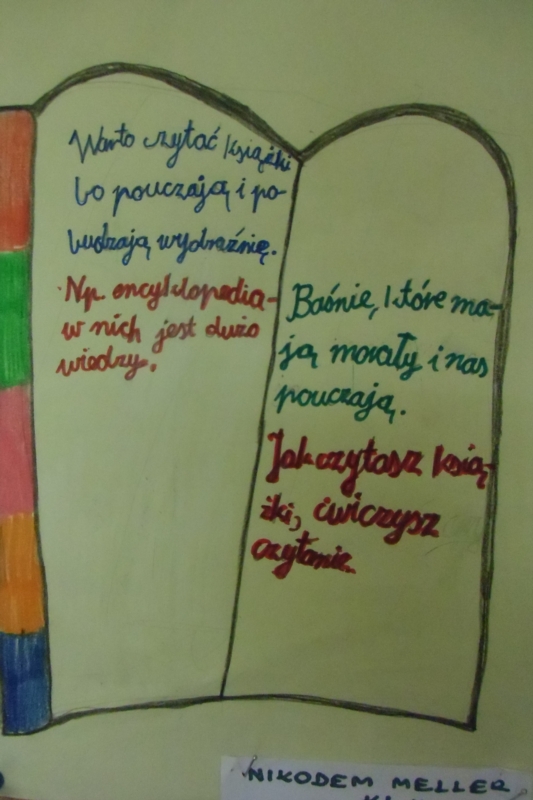 Warto czytać książki
bo pouczają i po-
budzają wyobraźnię.
Np. encyklopedia-
w nich jest dużo
wiedzy.
Baśnie, które ma-
ją morały i nas
pouczają.
Jak czytasz ksią-
żki, ćwiczysz
czytanie.
NIKODEM MELLER